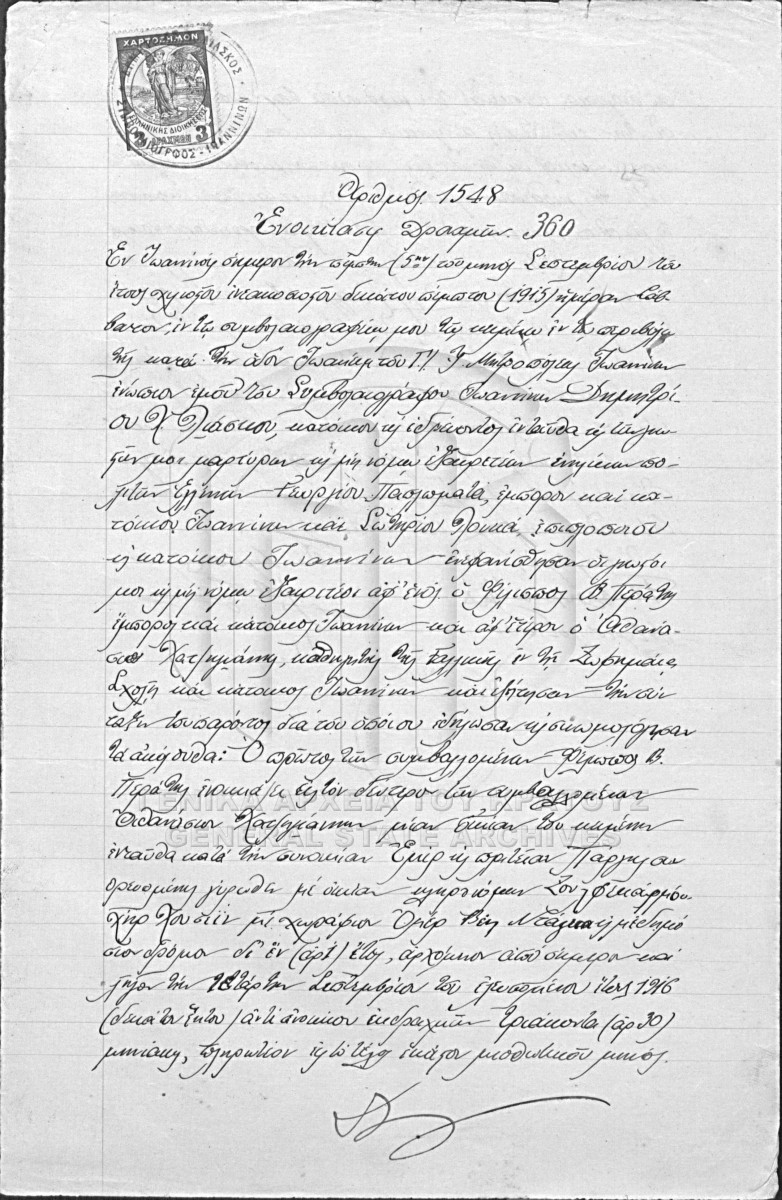 ΧΑΡΤΟΣΗΜΟΝ
ΕΛΛΗΝΙΚΗΣ ΔΙΟΙΚΗΣΕΩΣ
3 ΔΡΑΧΜΑΙ 3
ΣΥΜΒΟΛΑΙΟΓΡΑΦΟΣ - ΙΩΑΝΝΙΝΩΝ
Αριθμός 1548
Ενοικίασις Δραχμών 360
Εν Ιωαννίνοις σήμερον την πέμπτην (5ην) του μηνός Σεπτεμβρίου του
έτους χιλιοστού εννακοσιοστού δεκάτου πέμπτου (1915) ημέραν Σάβ-
βατον, εν τω συμβολαιογραφείω μου τω κειμένω εν τω περιβόλω
της κατά την οδόν Ιωακείμ του Γ'. Ι. Μητροπόλεως Ιωαννίνων
ενώπιον εμού του Συμβολαιογράφου Ιωαννίνων Δημητρί-
ου Χ. Πλιάσκου, κατοίκου και εδρεύοντος ενταύθα και των γνω-
στών μοι μαρτύρων και μη νόμω εξαιρετέων ενηλίκων πο-
λιτών Ελλήνων Γεωργίου Παπλωματά, εμπόρου και κα-
τοίκου Ιωαννίνων και Σωτηρίου
και κατοίκου Ιωαννίνων ενεφανίσθησαν οι γνωστοί
μοι και μη νόμω εξαιρετέοι αφ' ενός ο Φίλιππος Β. Περάτης
έμπορος και κάτοικος Ιωαννίνων και αφ' ετέρου ο Αθανά-
σιος Χατζηγιάννης, καθηγητής της Γαλλικής εν τη Ζωσιμαία
Σχολή και κάτοικος Ιωαννίνων και εζήτησαν την σύν-
ταξιν του παρόντος διά του οποίου εδήλωσαν και συνωμολόγησαν
τα ακόλουθα: Ο πρώτος των συμβαλλομένων Φίλιππος Β.
Περάτης ενοικιάζει εις τον δεύτερον των συμβαλλομένων
Αθανάσιον Χατζηγιάννην μίαν οικίαν του κειμένην
ενταύθα κατά την συνοικίαν
οριζομένην γύρωθεν με οικίαν κληρονόμων
με χωράφιον Ομέρ Βέη και με δημό-
σιον δρόμον δι' εν (αρ. 1) έτος, αρχόμενον από σήμερον και
λήγον την τετάρτην Σεπτεμβρίου του ερχομένου έτους 1916
(δεκάτου έκτου) αντί ενοικίου εκ δραχμών τριάκοντα (αρ 30)
μηνιαίως, πληρωτέον εις το τέλος εκάστου μισθωτικού μηνός.
ΓΕΝΙΚΑ ΑΡΧΕΙΑ ΤΟΥ ΚΡΑΤΟΥΣ
GENERAL STATE ARCHIVES